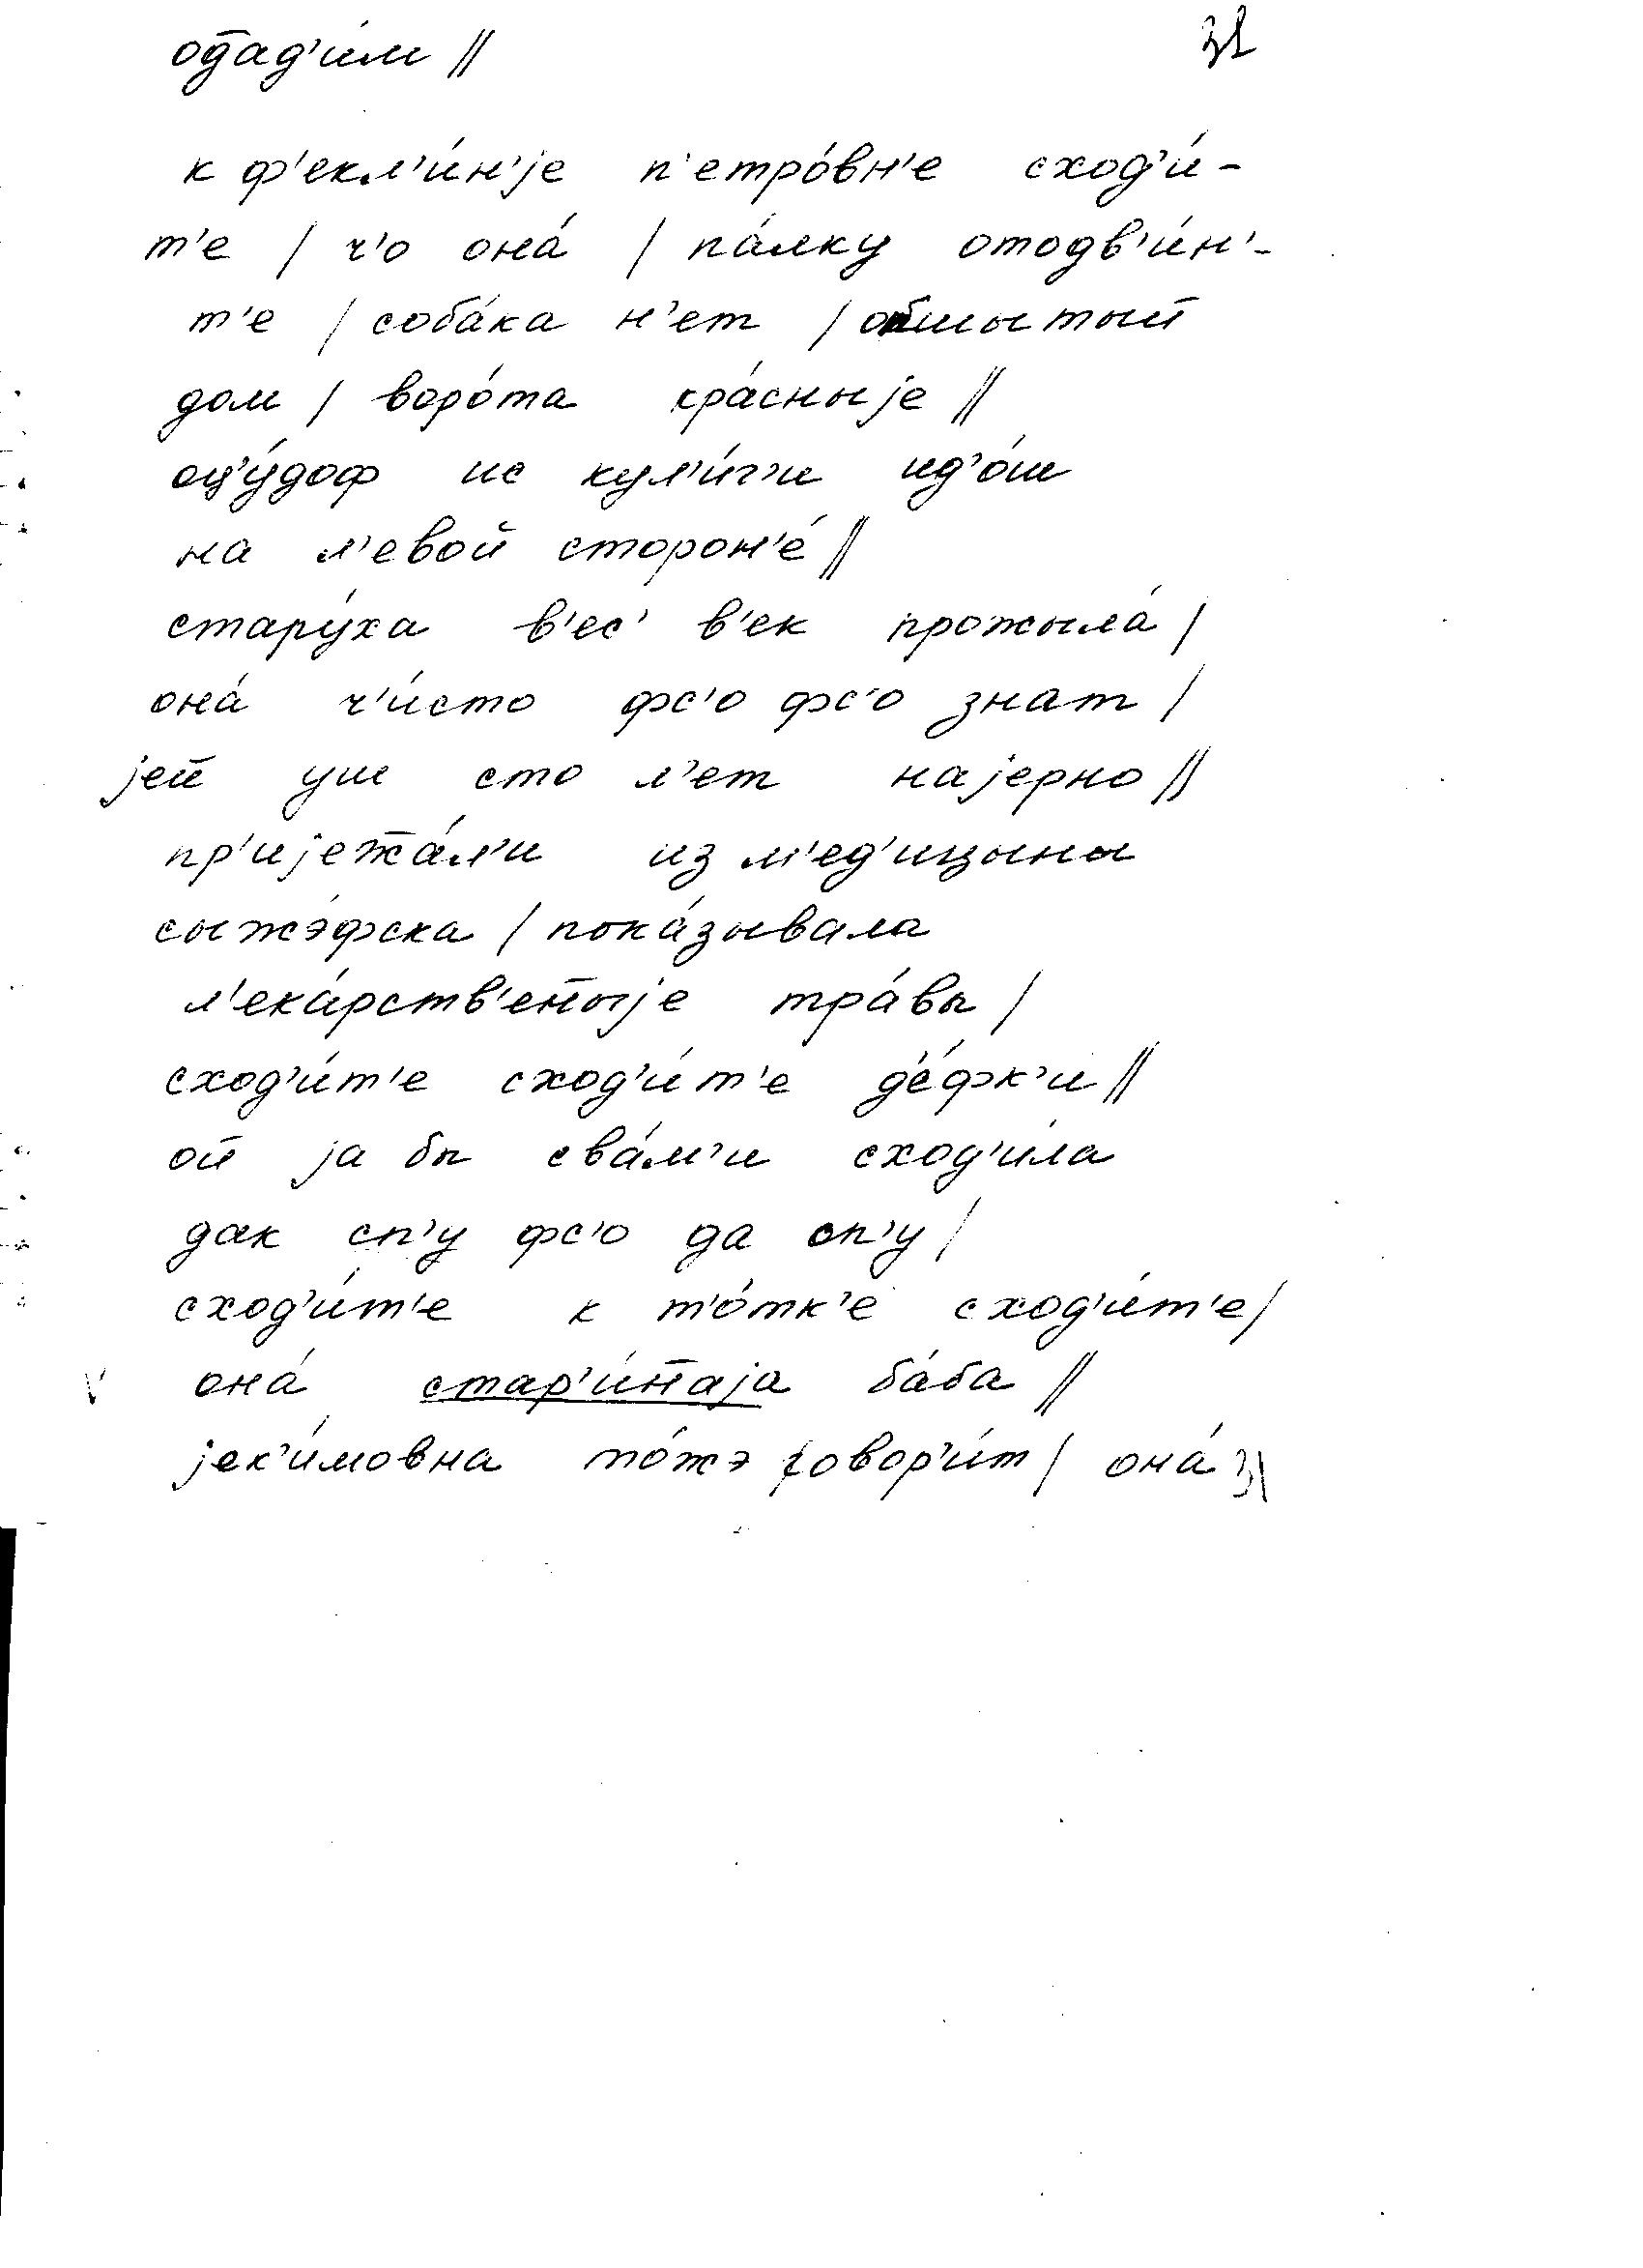 од̄ад'и́м ||
31
к ф'екл'и́н'jе п'етро́вн'е сход'и́-
т'е / ч'о она́ / па́лку отодв'и́н'-
т'е / соба́ка н'ет / опшытый
дом / воро́та кра́сныjе ||
оц'у́доф ис кул'и́г'и ид'о́ш
на л'евой сторон'е́ ||
стару́ха в'ес' в'ек прожыла́ /
она́ ч'и́сто фс'о фс'о знат /
jей уш сто л'ет наjерно ||
пр'иjеж̄а́л'и из м'ед'ицыны
сыжэ́фска / пока́зывала
л'ека́рств'ен̄ыjе тра́вы /
сход'и́т'е сход'и́т'е д'е́фк'и ||
ой jа бы сва́м'и сход'и́ла
дак сп'у фс'о да сп'у /
сход'и́т'е к т'о́тк'е сход'и́т'е /
она́ стар'и́н̄аjа ба́ба ||
jек'и́мовна то́жэ говор'и́т / она́